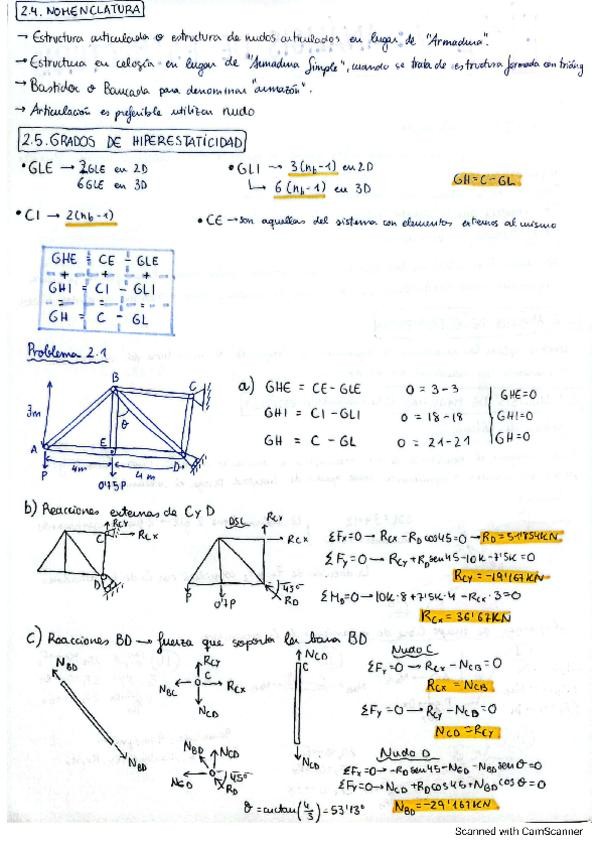 2.4. NOMENCLATURA
→ Estructura articulada o estructura de nudos articulados en lugar de "Armadura".
→ Estructura en celosía en lugar de "Armadura Simple", cuando se trata de estructura formada con triáng
→ Bastidor o Bancada para denominar "armazón".
→ Articulación es preferible utilizar nudo
2.5. GRADOS DE HIPERESTATICIDAD
• GLE → 3GLE en 2D
6GLE en 3D
• GLI → 3(nb-1) en 2D
↳ 6(nb-1) en 3D
GH=C-GL
• CI → 2(nb-1)
• CE → son aquellas del sistema con elementos externos al mismo
GHE = CE - GLE
+ + +
GHI = CI - GLI
= = =
GH = C - GL
Problema 2.1
B
C
3m
θ
A
E
D
4m
4m
P
0'75P
a) GHE = CE-GLE 0 = 3-3
GHI = CI-GLI 0 = 18-18
GH = C-GL 0 = 21-21
GHE=0
GHI=0
GH=0
b) Reacciones externas de C y D
RCY
C
RCX
D
DSL
RCY
RCX
P
0'7P
45°
RD
ΣFx=0 → RCX - RD cos45=0 → RD=51'854KN
ΣFy=0 → RCY+RD sen45-10K-7'5K=0
RCY=-19'167KN
ΣMD=0→10K·8+7'5K·4-RCX·3=0
RCX=36'67KN
c) Reacciones BD → fuerza que soporta la barra BD
NBD
NBD
RCY
C
NBC
RCX
NCD
NCD
C
NCD
NBD
NCD
NED
45°
RD
θ = arctan(4/3) = 53'13°
Nudo C
ΣFx=0 → RCX - NCB=0
RCX = NCB
ΣFy=0 → RCY - NCB=0
NCD=RCY
Nudo D
ΣFx=0→ -RD sen45-NED-NBD senθ=0
ΣFy=0→NCD+RD cos45+NBD cosθ=0
NBD=-29'167KN
Scanned with CamScanner